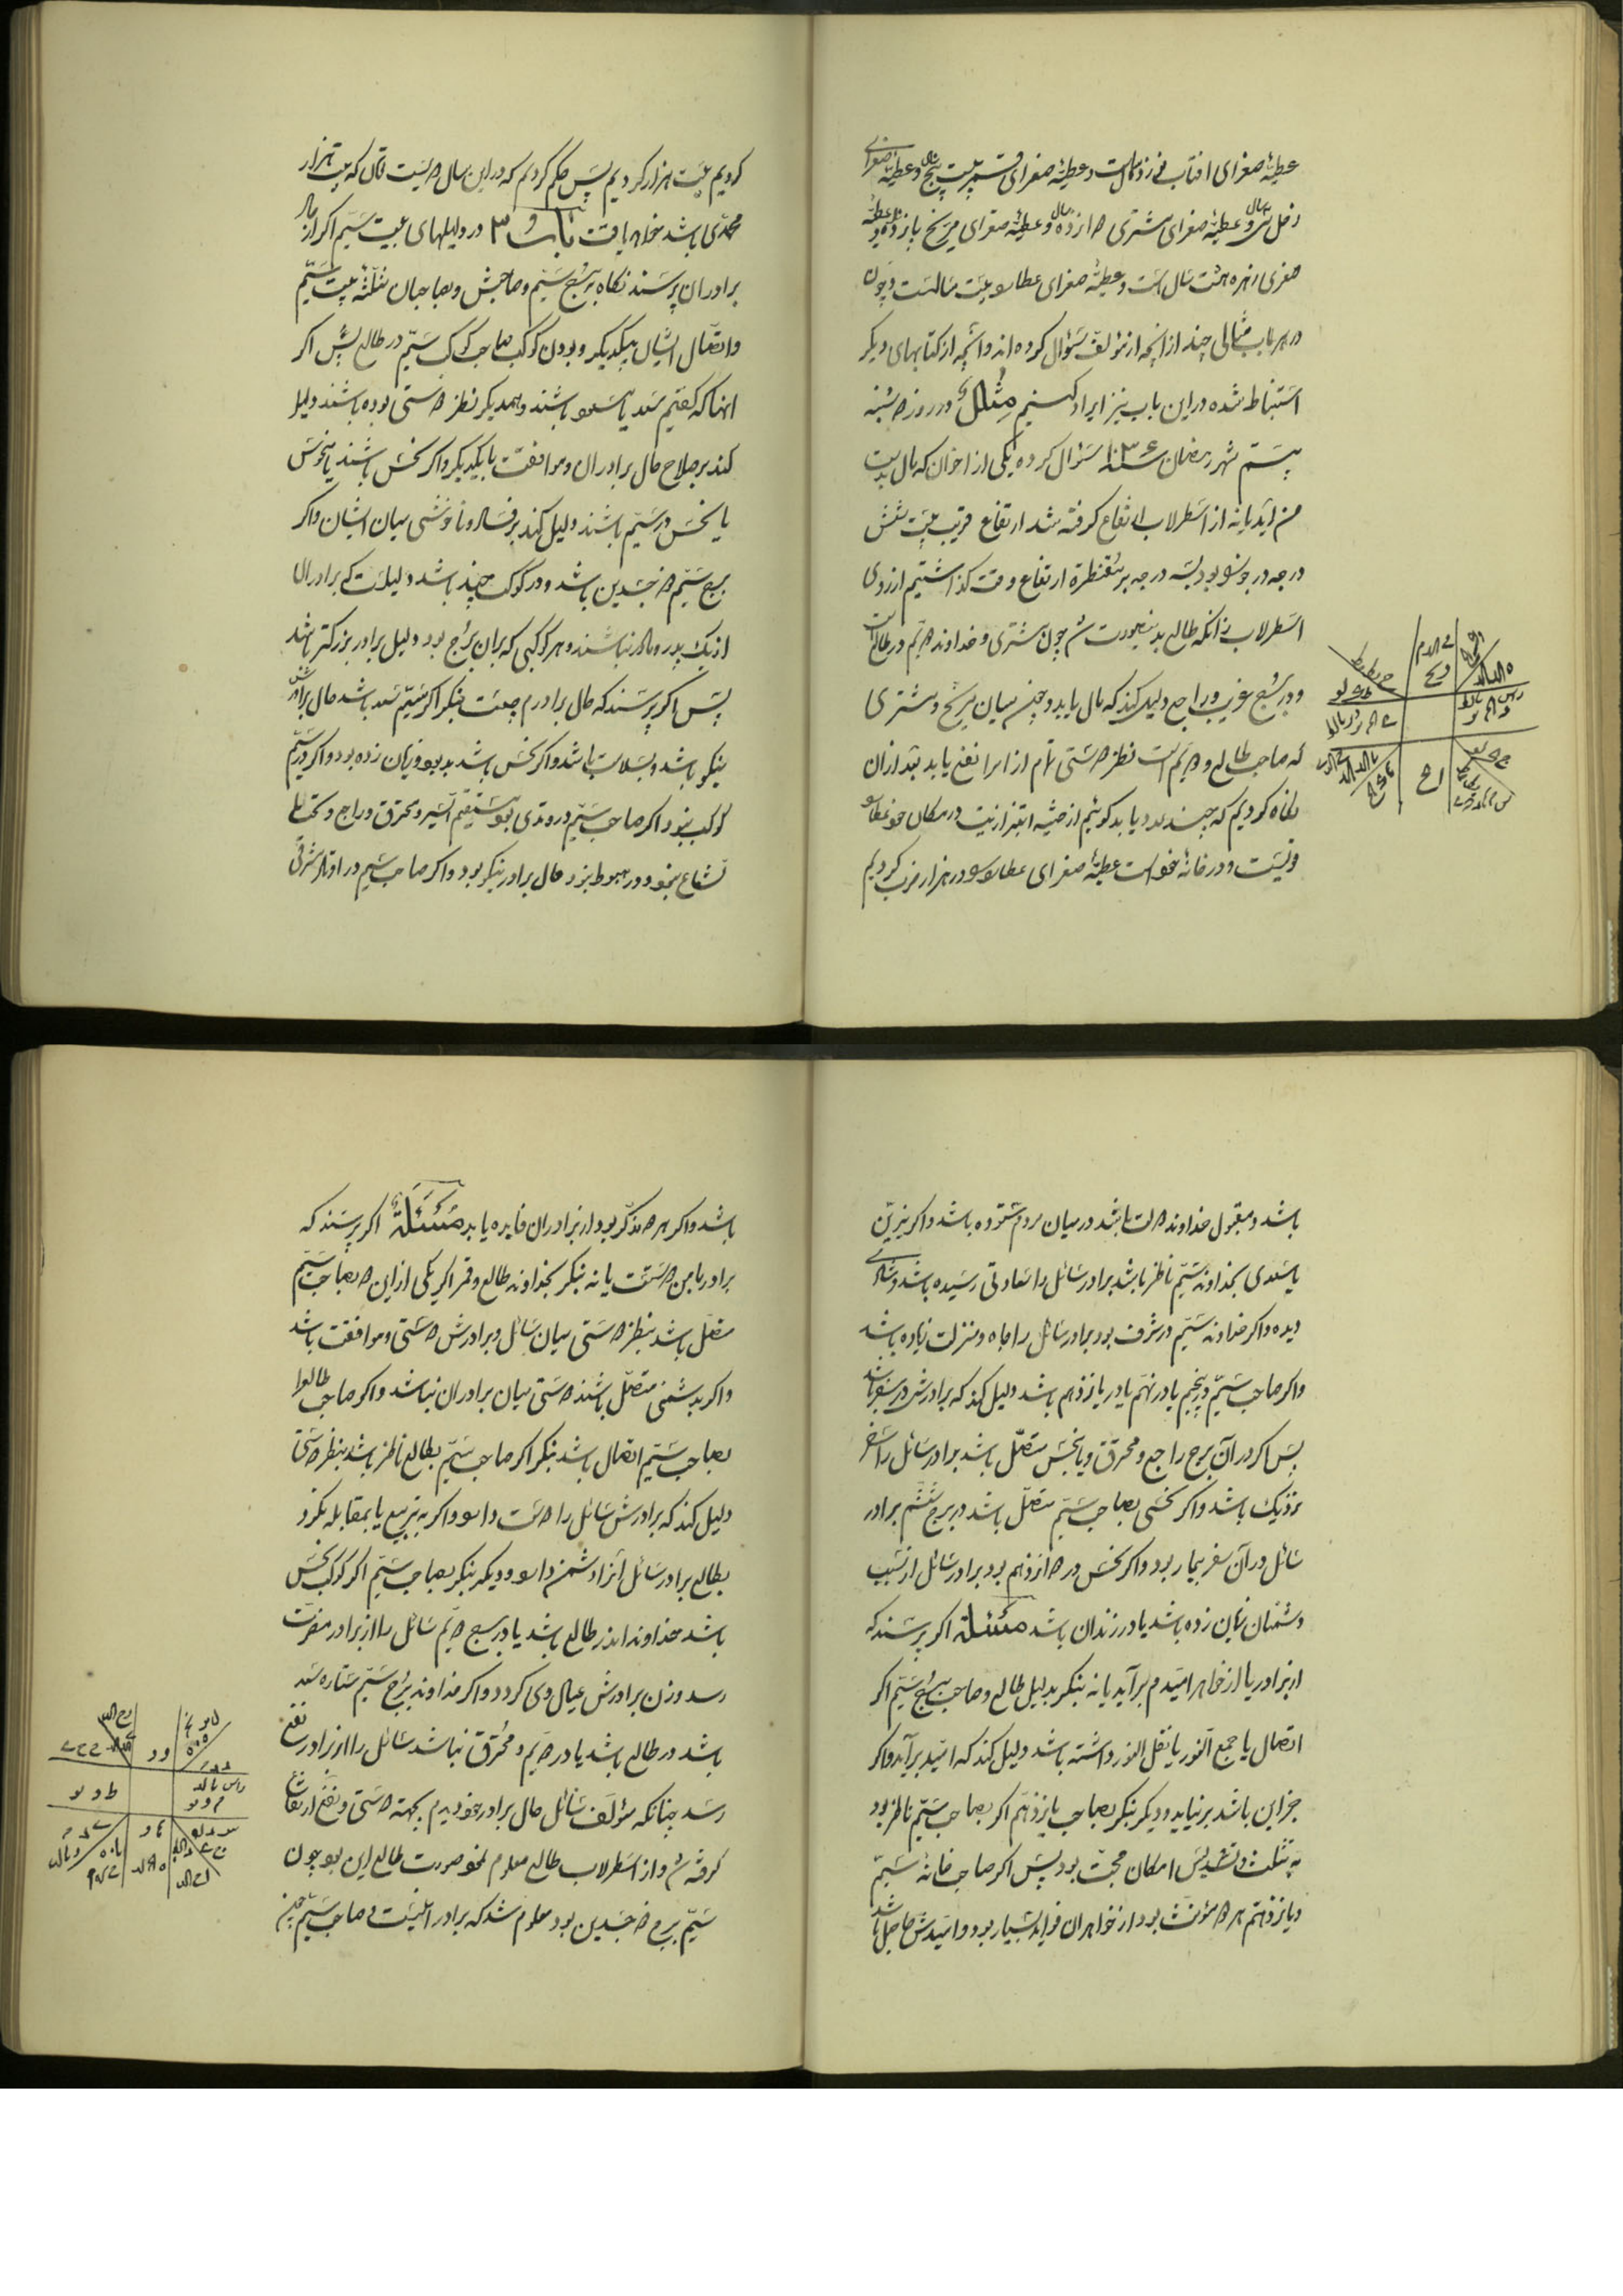 عطیهٔ صغرای افتاب نوزده سالست و عطیهٔ صغرای قمر بیست پنج سال و عطیهٔ صغرای
زحل سی سال و عطیهٔ صغرای مشتری دوازده سال و عطیهٔ صغرای مریخ پانزده و عطیه
صغری زهره هشت سال است و عطیهٔ صغرای عطارد بیست سالست و چون
در هر باب مثالی چند از انچه از مؤلف سؤال کرده اند و انچه از کتابهای دیگر
استنباط شده در این باب نیز ایراد کنیم مثال در روز دوشنبه
بیستم شهر رمضان سنه ۱۰۳۶ سؤال کرده یکی از اخوان که مال بدست
من آید یا نه از اسطرلاب ارتفاع گرفته شد ارتفاع قریب بیست شش
درجه در جوزا بود بیست درجه بر مقنطرهٔ ارتفاع وقت گذاشتیم از روی
اسطرلاب زانکه طالع بدینصورت شد چون مشتری و خداوند دویم در طالع است
و در برج غریب و راجع دلیل کند که مال یابد و چون میان مریخ و مشتری
که صاحب طالع و دویم است نظر دوستی تام از امرا نفع یابد بعد از آن
نگاه کردیم که چند عدد یابد گوئیم از حیثه ابتزاز نیست در مکان خود عطارد
قویست و در خانهٔ خود است عطیهٔ صغرای عطارد و در هزار ضرب کردیم
کردیم بیست هزار کردیم پس حکم کردیم که در این سال دویست تومان که بیست هزار
محمدی باشد خواهد یافت باب ۳ در دلیلهای بیت سیم اگر از حال
برادران پرسند نگاه ببرج سیم و صاحبش و بصاحبان مثلثه بیت سیم
و اتصال ایشان بیکدیگر و بودن کوکب صاحب کوکب سیم در طالع پس اگر
انها که گفتیم سعد یا مسعود باشند و بهمدیگر نظر دوستی بوده باشند دلیل
کند بر صلاح حال برادران و موافقت با یکدیگر و اگر نحس باشند یا منحوس
یا نحس در سیم باشند دلیل کند بر فساد و ناخوشی میان ایشان و اگر
برج سیم ذو جسدین باشد و در کوکب چند باشد دلیلست که برادران
از یک پدر و مادر نباشند و هر کوکبی که بران برج بود دلیل برادر بزرگتر باشد
پس اگر پرسند که حال برادرم چیست بنگر اگر سیم سعد باشد حال برادرش
نیکو باشد و بسلامت باشد و اگر نحس باشد بد بود و زیان زده بود و اگر در سیم
کوکب نبود اگر صاحب سیم در وتدی بود مستقیم السیر و محترق و راجع و تحت
الشعاع نبود و در هبوط نبود حال برادر نیکو بود و اگر صاحب سیم در اوتاد شرقی
باشد و مقبول خداوند دولت باشد در میان مردم ستوده باشد و اگر نیرین
یا سعدی بخداوند سیم ناظر باشد برادر سائل را سعادتی رسیده باشد و شادی
دیده و اگر خداوند سیم در شرف بود برادر سائل را جاه و منزلت زیاده باشد
و اگر صاحب سیم در پنجم یا در نهم یا در یازدهم باشد دلیل کند که برادرش در سفر باشد
پس اگر در آن برج راجع و محترق و یا بنحس متصل باشد برادر سائل را سفر
نزدیک باشد و اگر نحسی بصاحب سیم متصل باشد در برج ششم برادر
سائل در آن سفر بیمار بود و اگر نحس در دوازدهم بود برادر سائل از سبب
دشمنان زیان زده باشد یا در زندان باشد مسئلة اگر پرسند که
از برادر یا از خواهر امیدم برآید یا نه بنگر بدلیل طالع و صاحب برج سیم اگر
اتصال یا جمع النور یا نقل النور داشته باشد دلیل کند که امید برآید و اگر
جز این باشد برنیاید و دیگر بنگر بصاحب یازدهم اگر بصاحب سیم ناظر بود
به تثلیث و تسدیس امکان محبت بود پس اگر صاحب خانهٔ سیم
و یازدهم هر دو مؤنث بود از خواهران فواید بسیار بود و امیدش حاصل باشد
باشد و اگر هر دو مذکر بود از برادران فایده یابد مسئلة اگر پرسند که
برادر با من دوستست یا نه بنگر بخداوند طالع و قمر اگر یکی از این دو بصاحب سیم
متصل باشد بنظر دوستی میان سائل و برادرش دوستی و موافقت باشد
و اگر بدشمنی متصل باشند دوستی میان برادران نباشد و اگر صاحب طالع را
بصاحب سیم اتصال باشد بنگر اگر صاحب سیم بطالع ناظر باشد بنظر دوستی
دلیل کند که برادرش سائل را دوست دارد و اگر به تربیع یا بمقابله نگرد
بطالع برادر سائل آنرا دشمن دارد و دیگر بنگر بصاحب سیم اگر کوکب نحس
باشد خداوند اندر طالع باشد یا در برج دویم سائل را از برادر مضرت
رسد و زن برادرش عیال وی گردد و اگر خداوند برج سیم ستاره سعد
باشد در طالع باشد یا در دویم و محترق نباشد سائل را از برادر نفع
رسد چنانکه مؤلف سائل حال برادر خود بودم بجهة دوستی و نفع ارتفاع
گرفته شد و از اسطرلاب طالع معلوم نمود صورت طالع این بود چون
سیم برج ذو جسدین بود معلوم شد که برادر اعیانیست و صاحب سیم چون